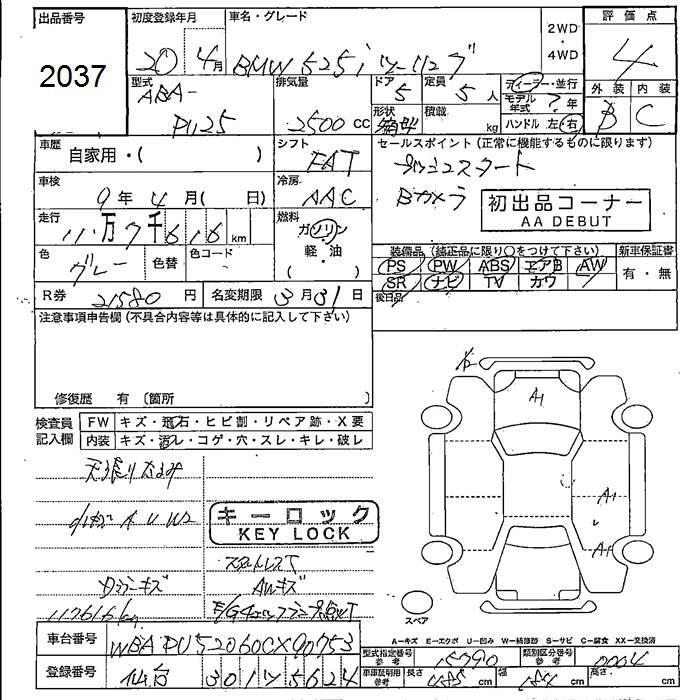 出品番号
2037
初度登録年月
20 4月
車名・グレード
BMW 525i ツーリング
2WD
・
4WD
評価点
4
外装 内装
B C
型式
ABA-
PU25
排気量
2500 CC
ドア
5
形状
定員
5 人
積載
kg
ディーラー・並行
モデル年式 ? 年
ハンドル 左・右
車歴
自家用・( )
シフト
FAT
セールスポイント (正常に機能するものに限ります)
プッシュスタート
Bカメラ
初出品コーナー
AA DEBUT
車検
9年 4月( 日)
冷房
AAC
走行
11万7千616 km
燃料
ガソリン
・
軽・油
( ・ )
色
グレー
色替
色コード
装備品 (純正品に限り○をつけて下さい)
新車保証書
PS PW ABS エアB AW
有・無
SR ナビ TV カワ
後日品
R券 21580 円
名変期限 3月31日
注意事項申告欄 (不具合内容等は具体的に記入して下さい)
修復歴 有 〔箇所 〕
検査員
記入欄
FW キズ・飛石・ヒビ割・リペア跡・X要
内装 キズ・汚レ・コゲ・穴・スレ・キレ・破レ
天張りたるみ
A U W2
キーロック
KEY LOCK
スタットレスT
AWキズ
キズ
117616 km
A1
A1
A1
スペア
A-キズ E-エクボ U-凹み W-補修跡 S-サビ C-腐食 XX-交換済
車台番号 WBAPU52060CX90753
登録番号 仙台 301 ツ 5624
型式指定番号 参考 15390
類別区分番号 参考 0004
車庫証明用 参考 長さ 485 cm 幅 184 cm 高さ cm